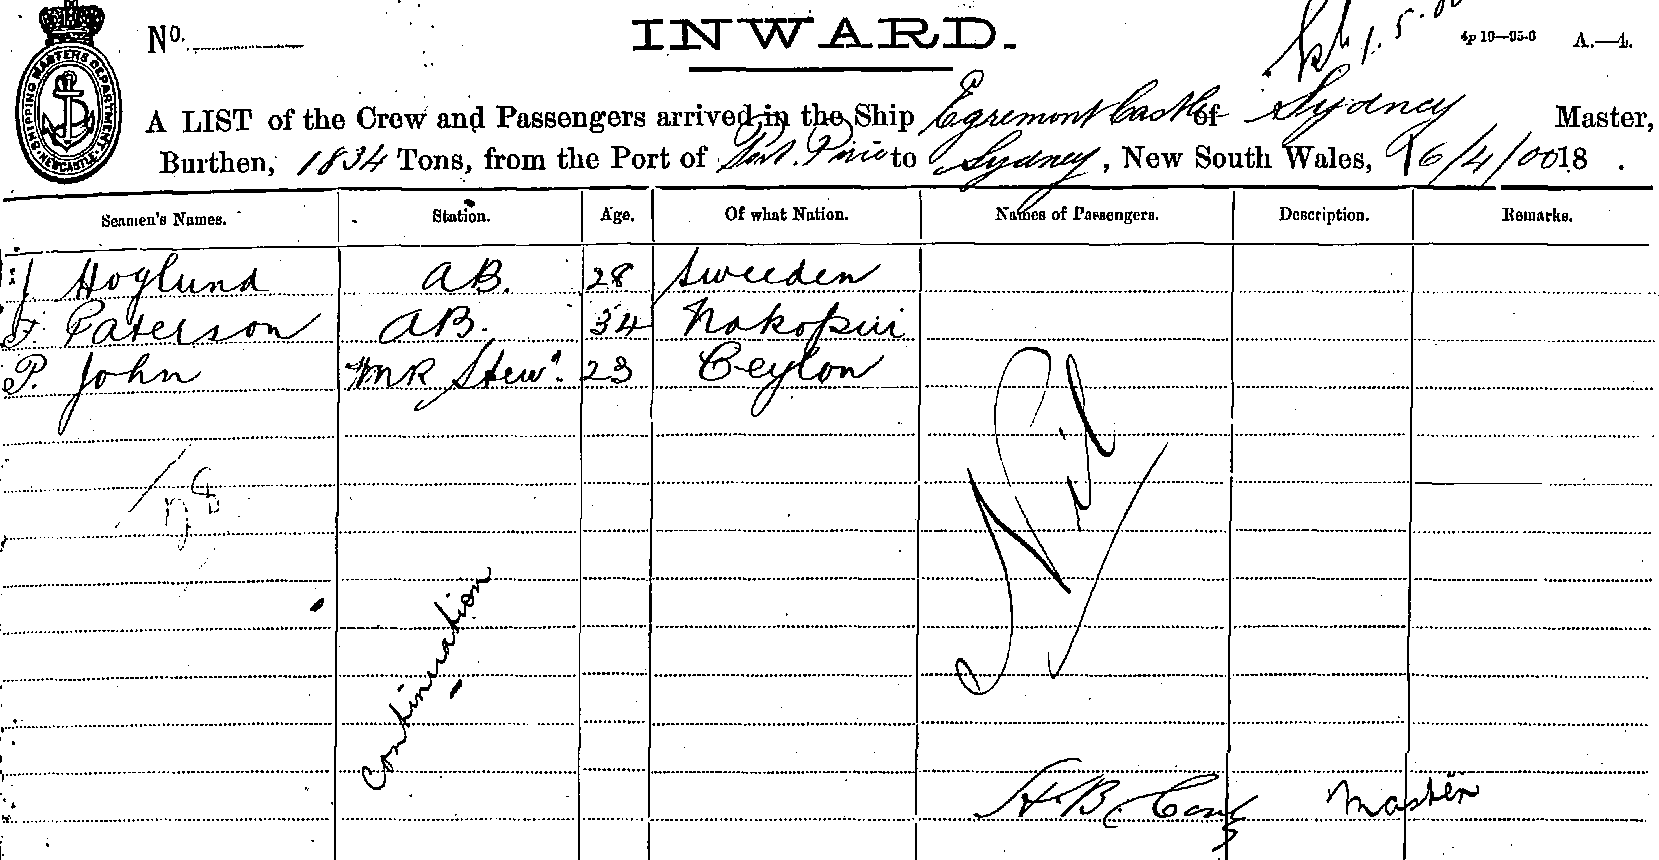 No.
INWARD.
1.5.00
A.—4.
SHIPPING MASTERS DEPARTMENT NEWCASTLE
A LIST of the Crew and Passengers arrived in the Ship Egremont Castle of Sydney Master,
Burthen, 1834 Tons, from the Port of Port Pirie to Sydney, New South Wales, 16/4/00 18 .
Seamen's Names. Station. Age. Of what Nation. Names of Passengers. Description. Remarks.
J Hoglund AB. 28 Sweeden
F. Paterson AB. 34
P. John Stewd. 23 Ceylon
Nil
Continuation
H. B. Master